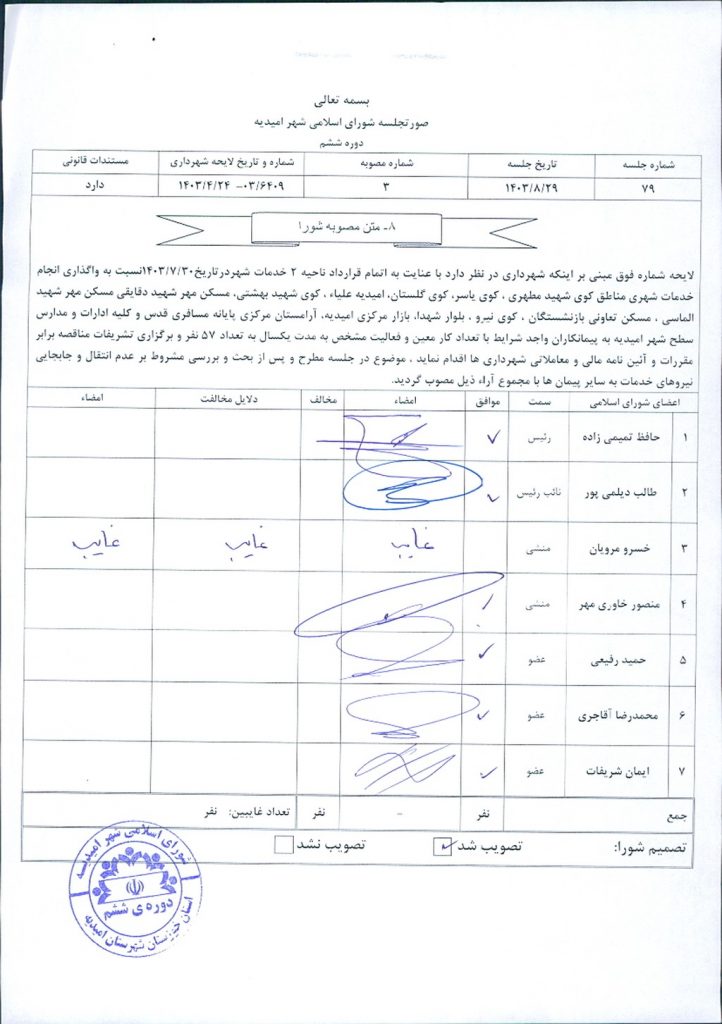 بسمه تعالی
صورتجلسه شورای اسلامی شهر امیدیه
دوره ششم
شماره جلسه تاریخ جلسه شماره مصوبه شماره و تاریخ لایحه شهرداری مستندات قانونی
۷۹ ۱۴۰۳/۸/۲۹ ۳ ۰۳/۶۴۰۹– ۱۴۰۳/۴/۲۴ دارد
۸- متن مصوبه شورا
لایحه شماره فوق مبنی بر اینکه شهرداری در نظر دارد با عنایت به اتمام قرارداد ناحیه ۲ خدمات شهردرتاریخ۱۴۰۳/۷/۳۰نسبت به واگذاری انجام
خدمات شهری مناطق کوی شهید مطهری ، کوی یاسر، کوی گلستان، امیدیه علیاء ، کوی شهید بهشتی، مسکن مهر شهید دقایقی مسکن مهر شهید
الماسی ، مسکن تعاونی بازنشستگان ، کوی نیرو ، بلوار شهدا، بازار مرکزی امیدیه، آرامستان مرکزی پایانه مسافری قدس و کلیه ادارات و مدارس
سطح شهر امیدیه به پیمانکاران واجد شرایط با تعداد کار معین و فعالیت مشخص به مدت یکسال به تعداد ۵۷ نفر و برگزاری تشریفات مناقصه برابر
مقررات و آئین نامه مالی و معاملاتی شهرداری ها اقدام نماید ، موضوع در جلسه مطرح و پس از بحث و بررسی مشروط بر عدم انتقال و جابجایی
نیروهای خدمات به سایر پیمان ها با مجموع آراء ذیل مصوب گردید.
اعضای شورای اسلامی سمت موافق امضاء مخالف دلایل مخالفت امضاء
۱ حافظ تمیمی زاده رئیس ✓
۲ طالب دیلمی پور نائب رئیس ✓
۳ خسرو مرویان منشی غایب غایب غایب
۴ منصور خاوری مهر منشی
۵ حمید رفیعی عضو ✓
۶ محمدرضا آقاجری عضو ✓
۷ ایمان شریفات عضو ✓
جمع نفر – نفر تعداد غایبین: نفر
تصمیم شورا: تصویب شد ✓ تصویب نشد
شورای اسلامی شهر امیدیه
دوره ی ششم
استان خوزستان شهرستان امیدیه